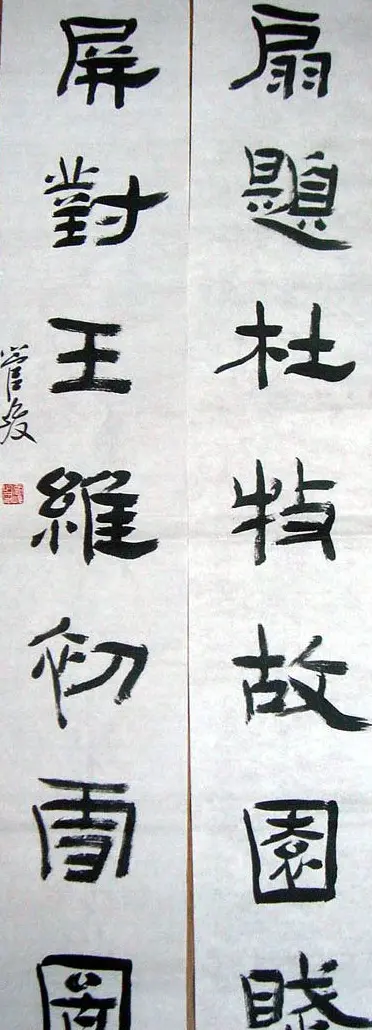 扇題杜牧故園賦
屏對王維初雪圖
管峻